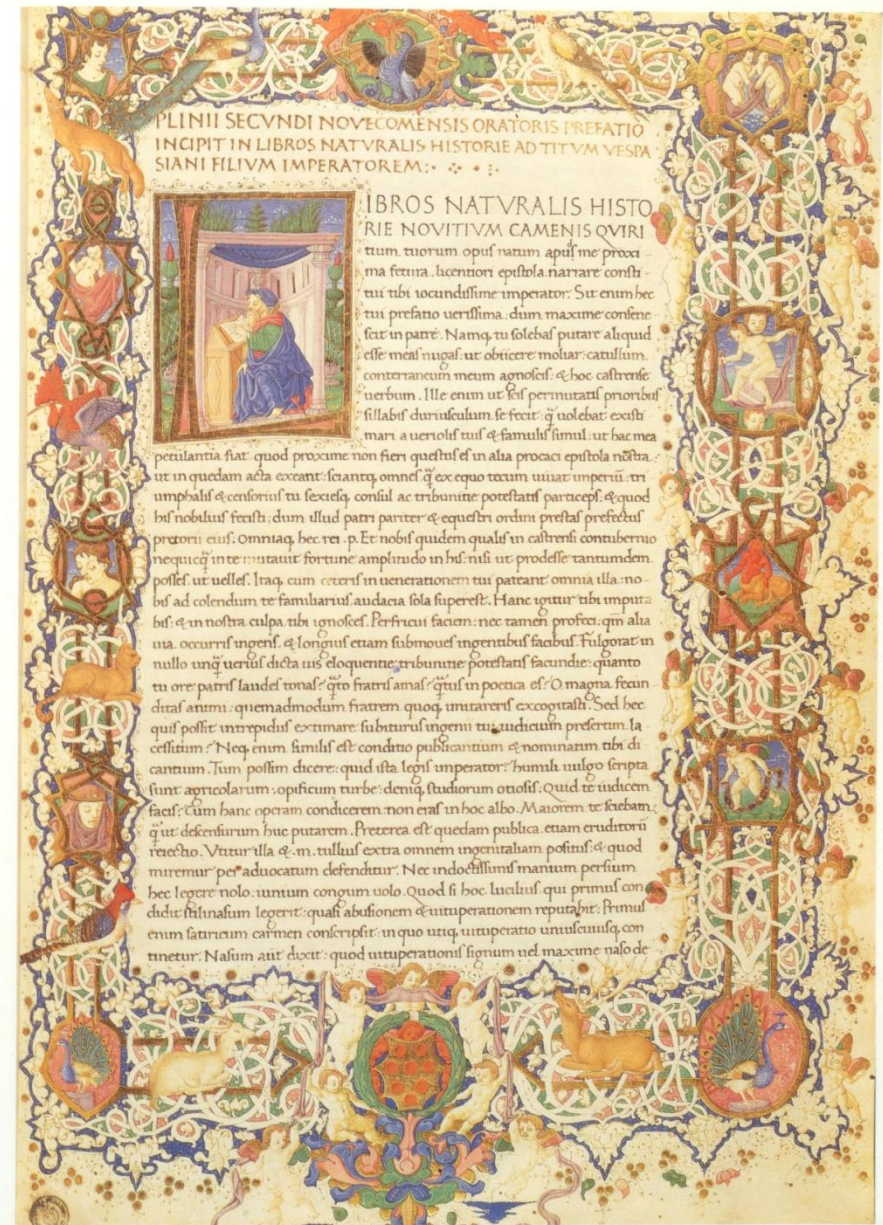 PLINII SECVNDI NOVECOMENSIS ORATORIS PREFATIO
INCIPIT IN LIBROS NATVRALIS HISTORIE AD TITVM VESPA
SIANI FILIVM IMPERATOREM:
IBROS NATVRALIS HISTO
RIE NOVITIVM CAMENIS QVIRI
tium tuorum opus natum apud me proxi-
ma fetura. licentiori epistola narrare consti-
tui tibi iocundissime imperator. Sit enim hec
tui prefatio uerissima. dum maxime consene
scit in patre. Namq, tu solebas putare aliquid
esse meas nugas: ut obiicere moliar: catullum
conterraneum meum agnoscis: & hoc castrense
uerbum. Ille enim ut scis permutatis prioribus
sillabis duriusculum se fecit: q̄ uolebat existi
mari a ueriolis tuis & famulis simul: ut hac mea
petulantia fiat quod proxime non fieri questus es in alia procaci epistola nostra:
ut in quedam acta exeant: sciantq, omnes q̄ ex equo tecum uiuat imperiū: tri
umphalis & censorius tu sexiesq, consul ac tribunitie potestatis particeps: & quod
his nobilius fecisti: dum illud patri pariter & equestri ordini prestas prefectus
pretorii eius: Omniaq, hec rei .p. Et nobis quidem qualis in castrensi contubernio
nequicq̄ in te mutauit fortune amplitudo in his: nisi ut prodesse tantumdem
posses: ut uelles. Itaq, cum ceteris in uenerationem tui pateant omnia illa: no-
bis ad colendum te familiarius audacia sola superest. Hanc igitur tibi imputa
bis: & in nostra culpa tibi ignosces. Perfricui faciem: nec tamen profeci: qm̄ alia
uia occurris ingens: & longius etiam submoues ingentibus facibus. Fulgorat in
nullo unq̄ uerius dicta uis eloquentie: tribunitie potestatis facundie: quanto
tu ore patris laudes tonas: q̄to fratris amas: q̄tus in poetica es: O magna fecun
ditas animi: quemadmodum fratrem quoq, imitareris excogitasti. Sed hec
quis possit intrepidus extimare subiturus ingenii tui iudicium presertim la
cessitum: Neq, enim similis est conditio publicantium & nominatim tibi di
cantium. Tum possim dicere: quid ista legis imperator: humili uulgo scripta
sunt agricolarum: opificum turbe: deniq, studiorum otiosis: Quid te iudicem
facis: Cum hanc operam condicerem: non eras in hoc albo. Maiorem te sciebam:
q̄ ut descensurum huc putarem. Preterea est quedam publica etiam eruditorū
reiectio. Vtitur illa & .m. tullius extra omnem ingenii aliam positus: & quod
miremur per aduocatum defenditur. Nec indoctissimis manium persium
hec legere nolo: iunium congum uolo. Quod si hoc lucilius qui primus con
didit stili nasum legerit: quasi abusionem & uituperationem reputabit: Primus
enim satiricum carmen conscripsit: in quo utiq, uituperatio uniuscuiusq, con
tinetur. Nasum aut dixit: quod uituperationis signum uel maxime naso de